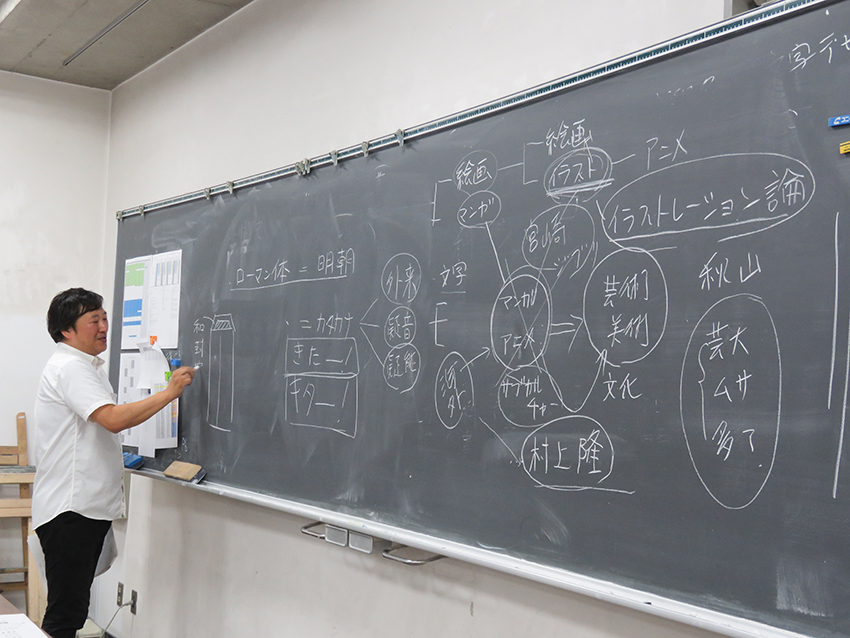 ローマン体 = 明朝
= カタカナ
きたー!
キター!
外来
擬音
擬態
絵画
マンガ
文字
絵画
イラスト
アニメ
イラストレーション論
宮崎
ジブリ
マンガ
アニメ
サブカル
チャー
村上隆
芸術
美術
文化
秋山
芸大
ムサ
多マ
字デザ